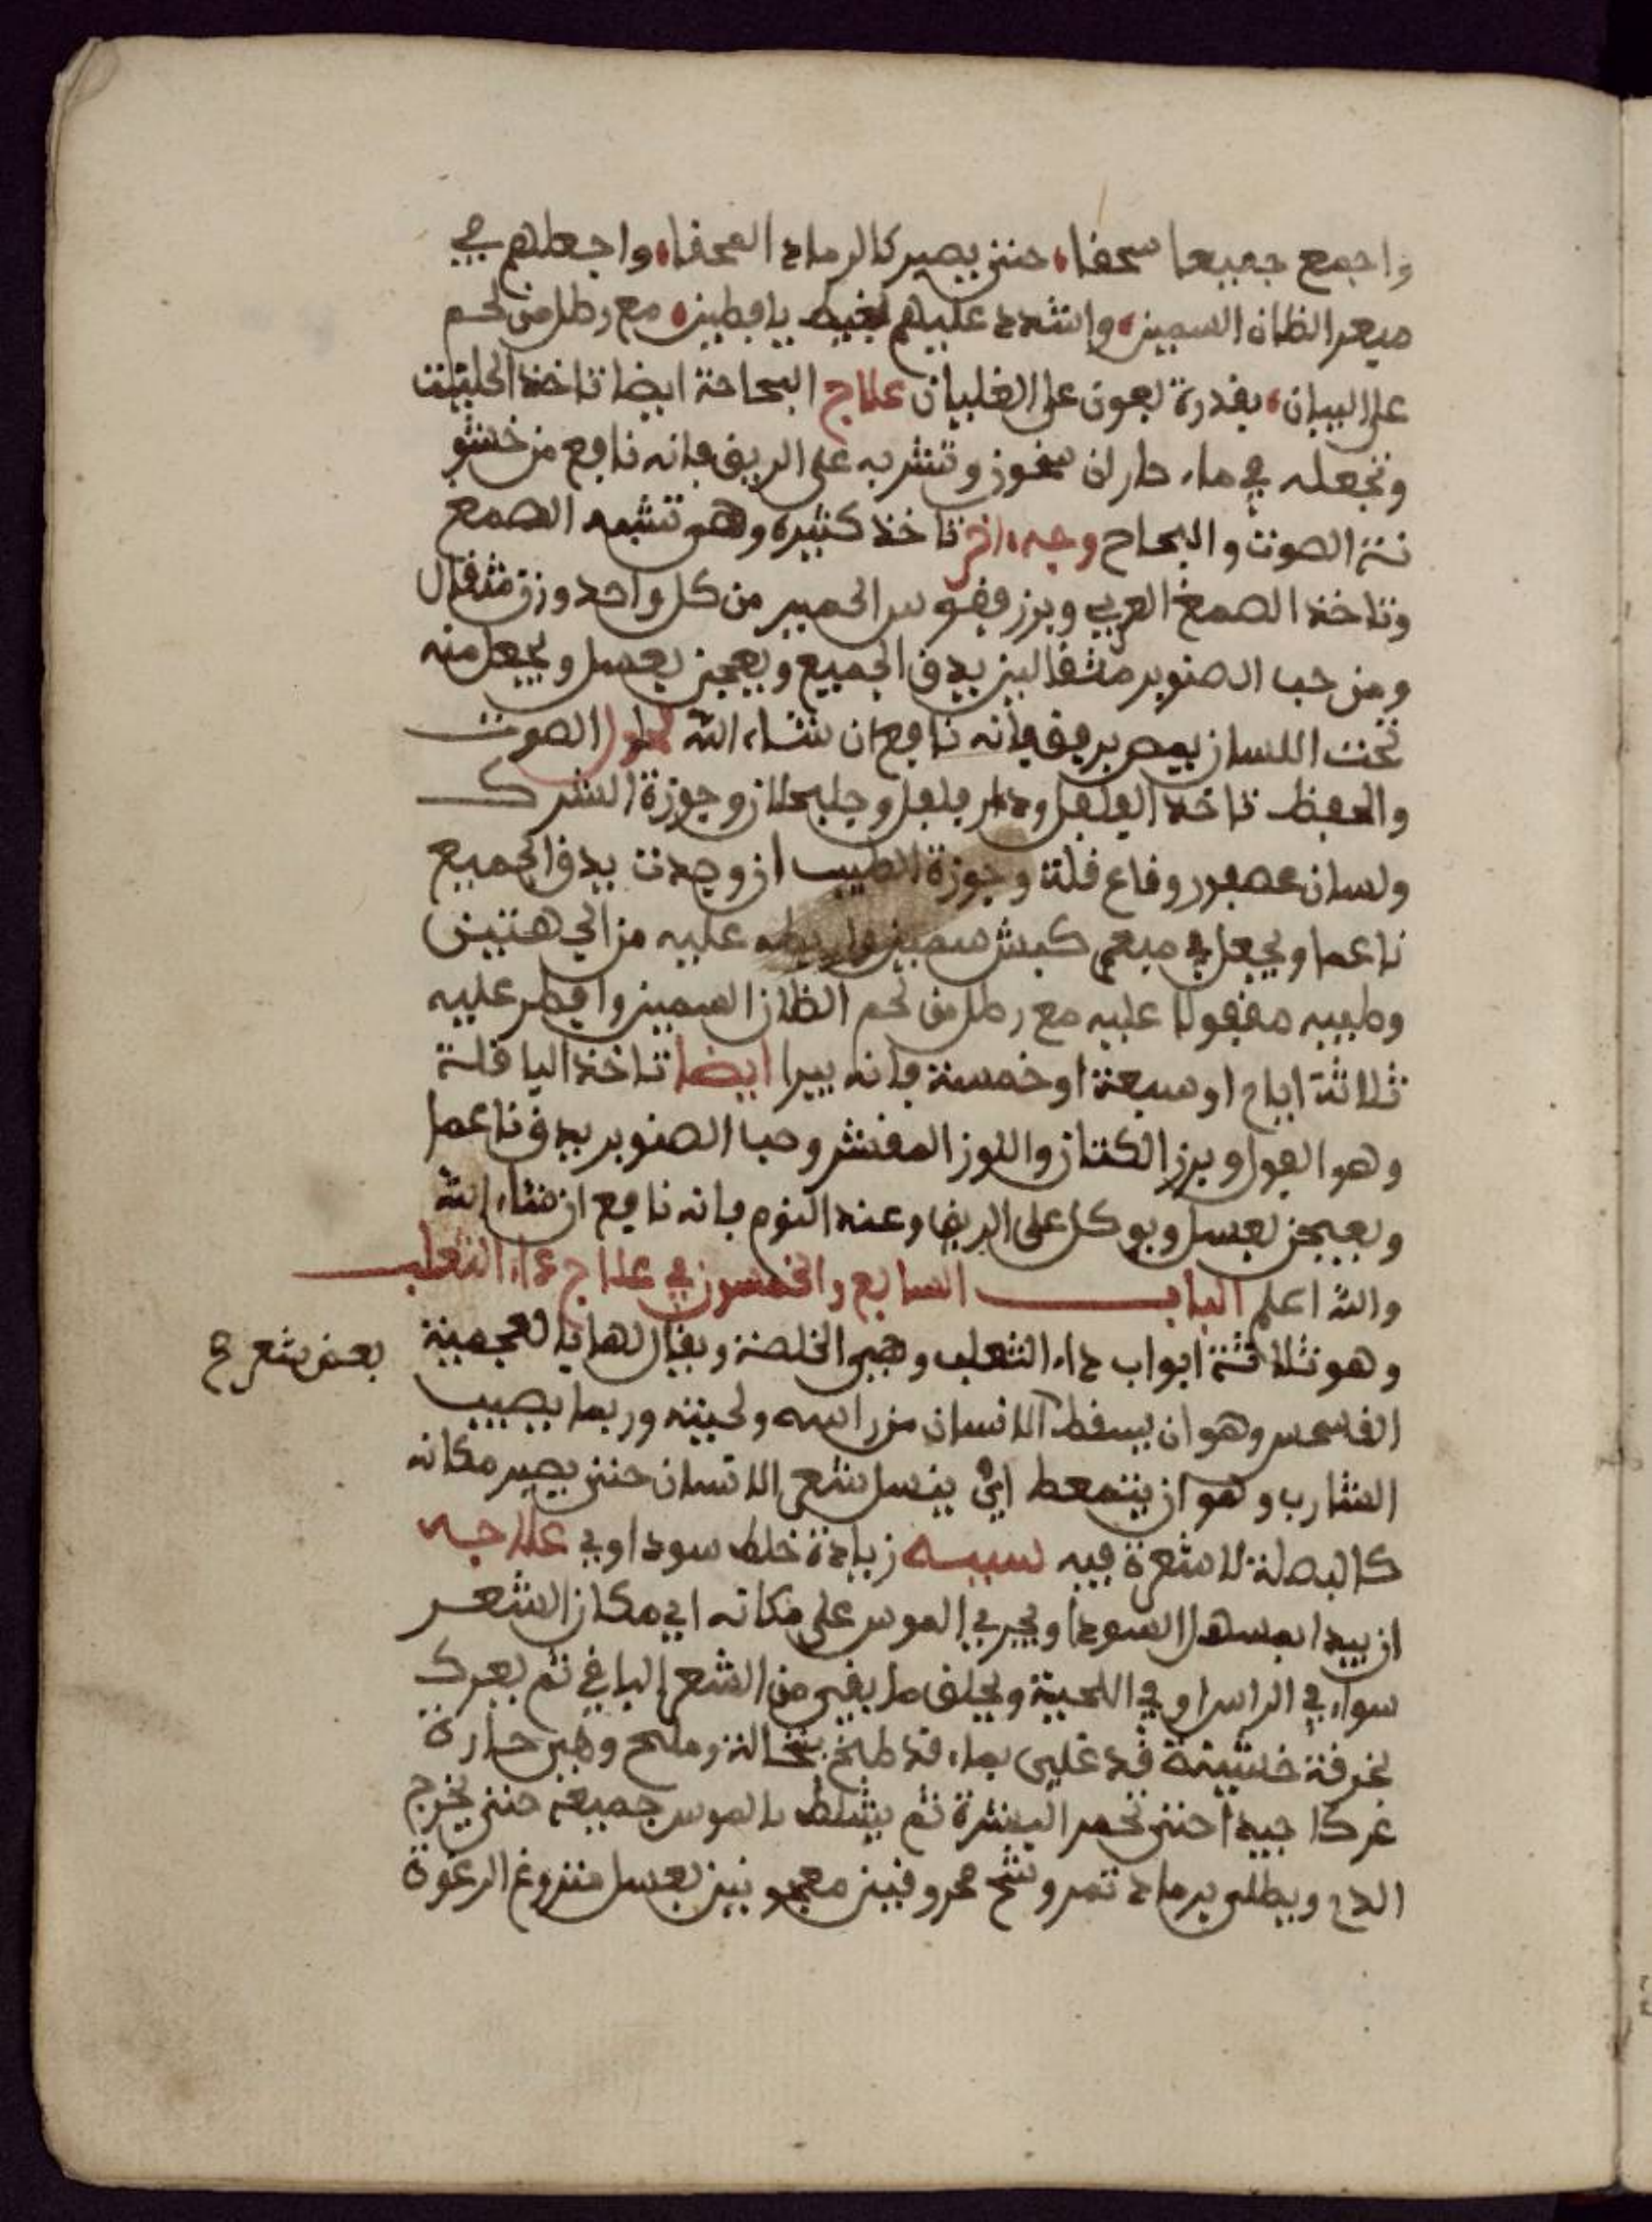 واجمع جميعا سحفا، حتى يصير كالرماد السحفا، واجعلهم في
ميعر الظان السمين، واشدد عليهم بخيط يافطين، مع رطل من لحم
على البيان، بقدرة لعون على الغليان علاج البحاحة ايضا تاخذ الحلتيت
وتجعله في ماء حار ان سخون وتشربه على الريق فانه نافع من خشو
نة الصوت والبحاح وجه ءاخر تاخذ كثيره وهو تشبه الصمع
وتاخذ الصمغ العربي وبزر ففوس الحمير من كل واحد وزن مثقال
ومن حب الصنوبر مثقالين يدق الجميع ويعجن بعسل ويجعل منه
تحت اللسان يمص بريق فانه نافع ان شاء الله الصوت
والحفظ تاخذ الفلفل ودار فلفل وجلجلان وجوزة الشرك
ولسان عصفور وقاع قلة وجوزة الطيب ان وجدت يدق الجميع
ناعما ويجعل في ميعر كبش سمين واربطه عليه من الجهتين
وطيبه مفقولا عليه مع رطل من لحم الظان السمين وافطر عليه
ثلاثة ايام او سبعة او خمسة فانه يبرا ايضا تاخذ الباقلة
وهو الفول وبزر الكتان واللوز المقشر وحب الصنوبر يدق ناعما
ويعجن بعسل ويوكل على الريق وعند النوم فانه نافع ان شاء الله
والله اعلم الباب السابع والخمسون في علاج داء الثعلب
وهو ثلاثة ابواب داء الثعلب وهي الخلصة ويقال لها بالعجمية
بعض شعر ح
الفاسحس وهو ان يسقط الانسان من راسه ولحيته وربما يصيب
الشارب وهو ان يتمعط اي ينسل شعر الانسان حتى يصير مكانه
كالبصلة لا شعرة فيه سببه زيادة خلط سوداوي علاجه
ان يبدا بمسهل السودا ويجري الموس على مكانه اي مكان الشعر
سواء في الراس او في اللحية ويحلق ما بقي من الشعر الباقي ثم يعرك
بخرفة خشينة قد غلي بماء قد طبخ بنخالة وملح وهي حارة
عركا جيدا حتى تحمر البشرة ثم يشلط بالموس جميعه حتى يخرج
الدم ويطلى برماد تمر وشح محروقين معجونين بعسل منزوع الرغوة